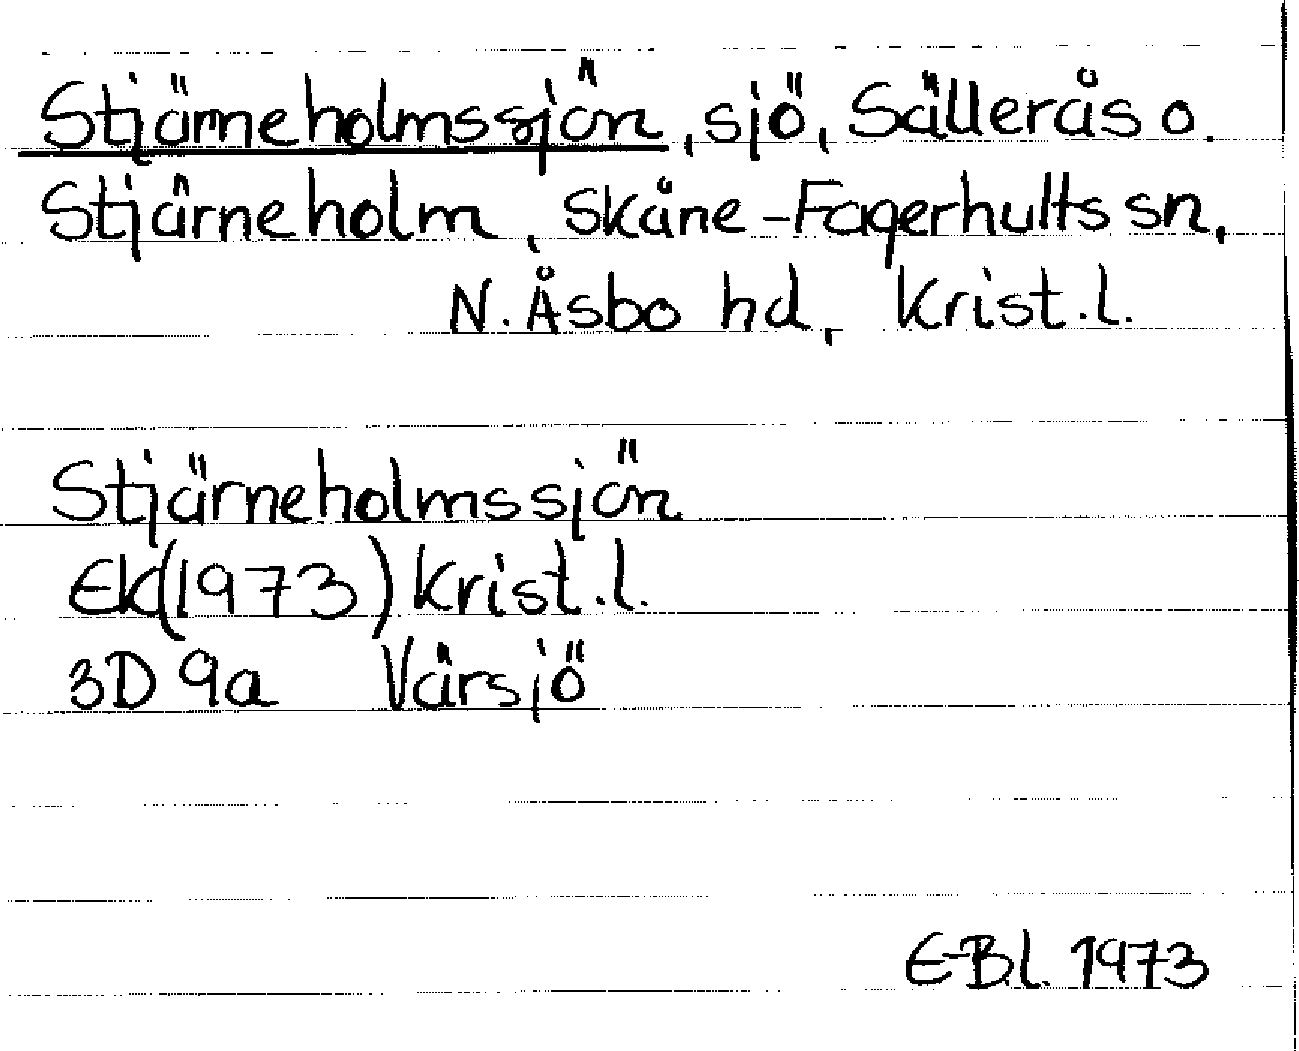 Stjärneholmssjön, sjö, Sällerås o.
Stjärneholm, Skåne-Fagerhults sn,
N. Åsbo hd, Krist. l.
Stjärneholmssjön
Ek (1973) Krist. l.
3D 9a Värsjö
E-Bl. 1973